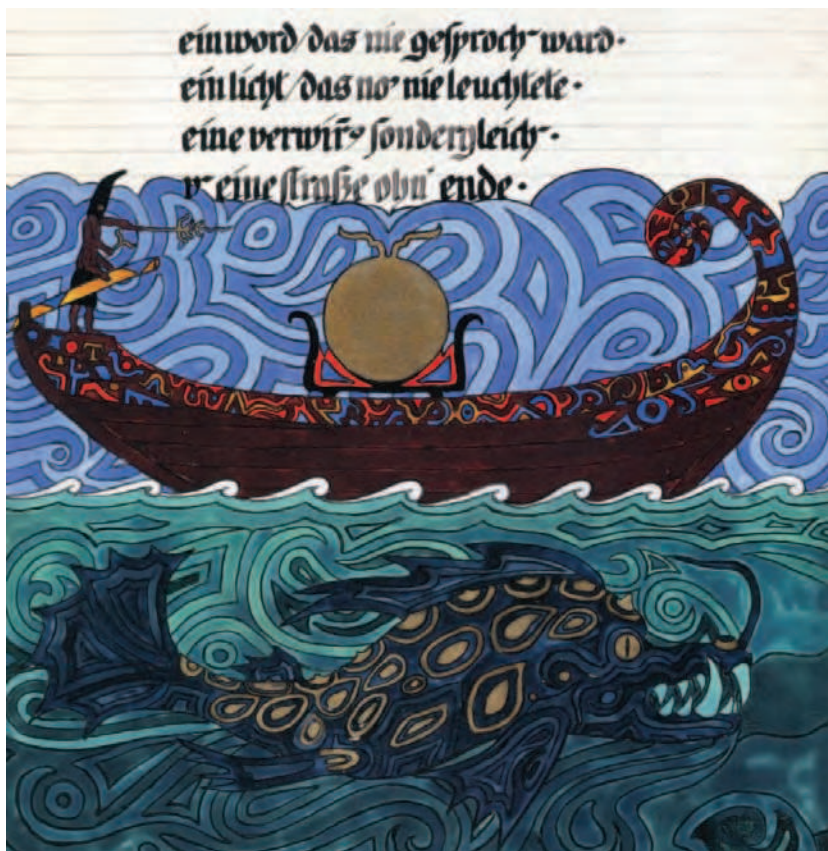 ein word / das nie geſproch‾ ward ·
ein licht / das no‾ nie leuchtete ·
eine verwir̄‾ ſondergleich‾ ·
v‾ eine ſtraße ohn' ende ·